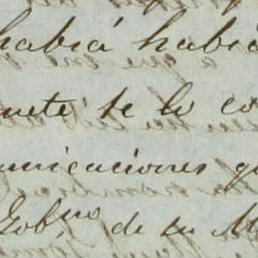 habiá habid
te lo co
unicaciones q
Gob.no de su M